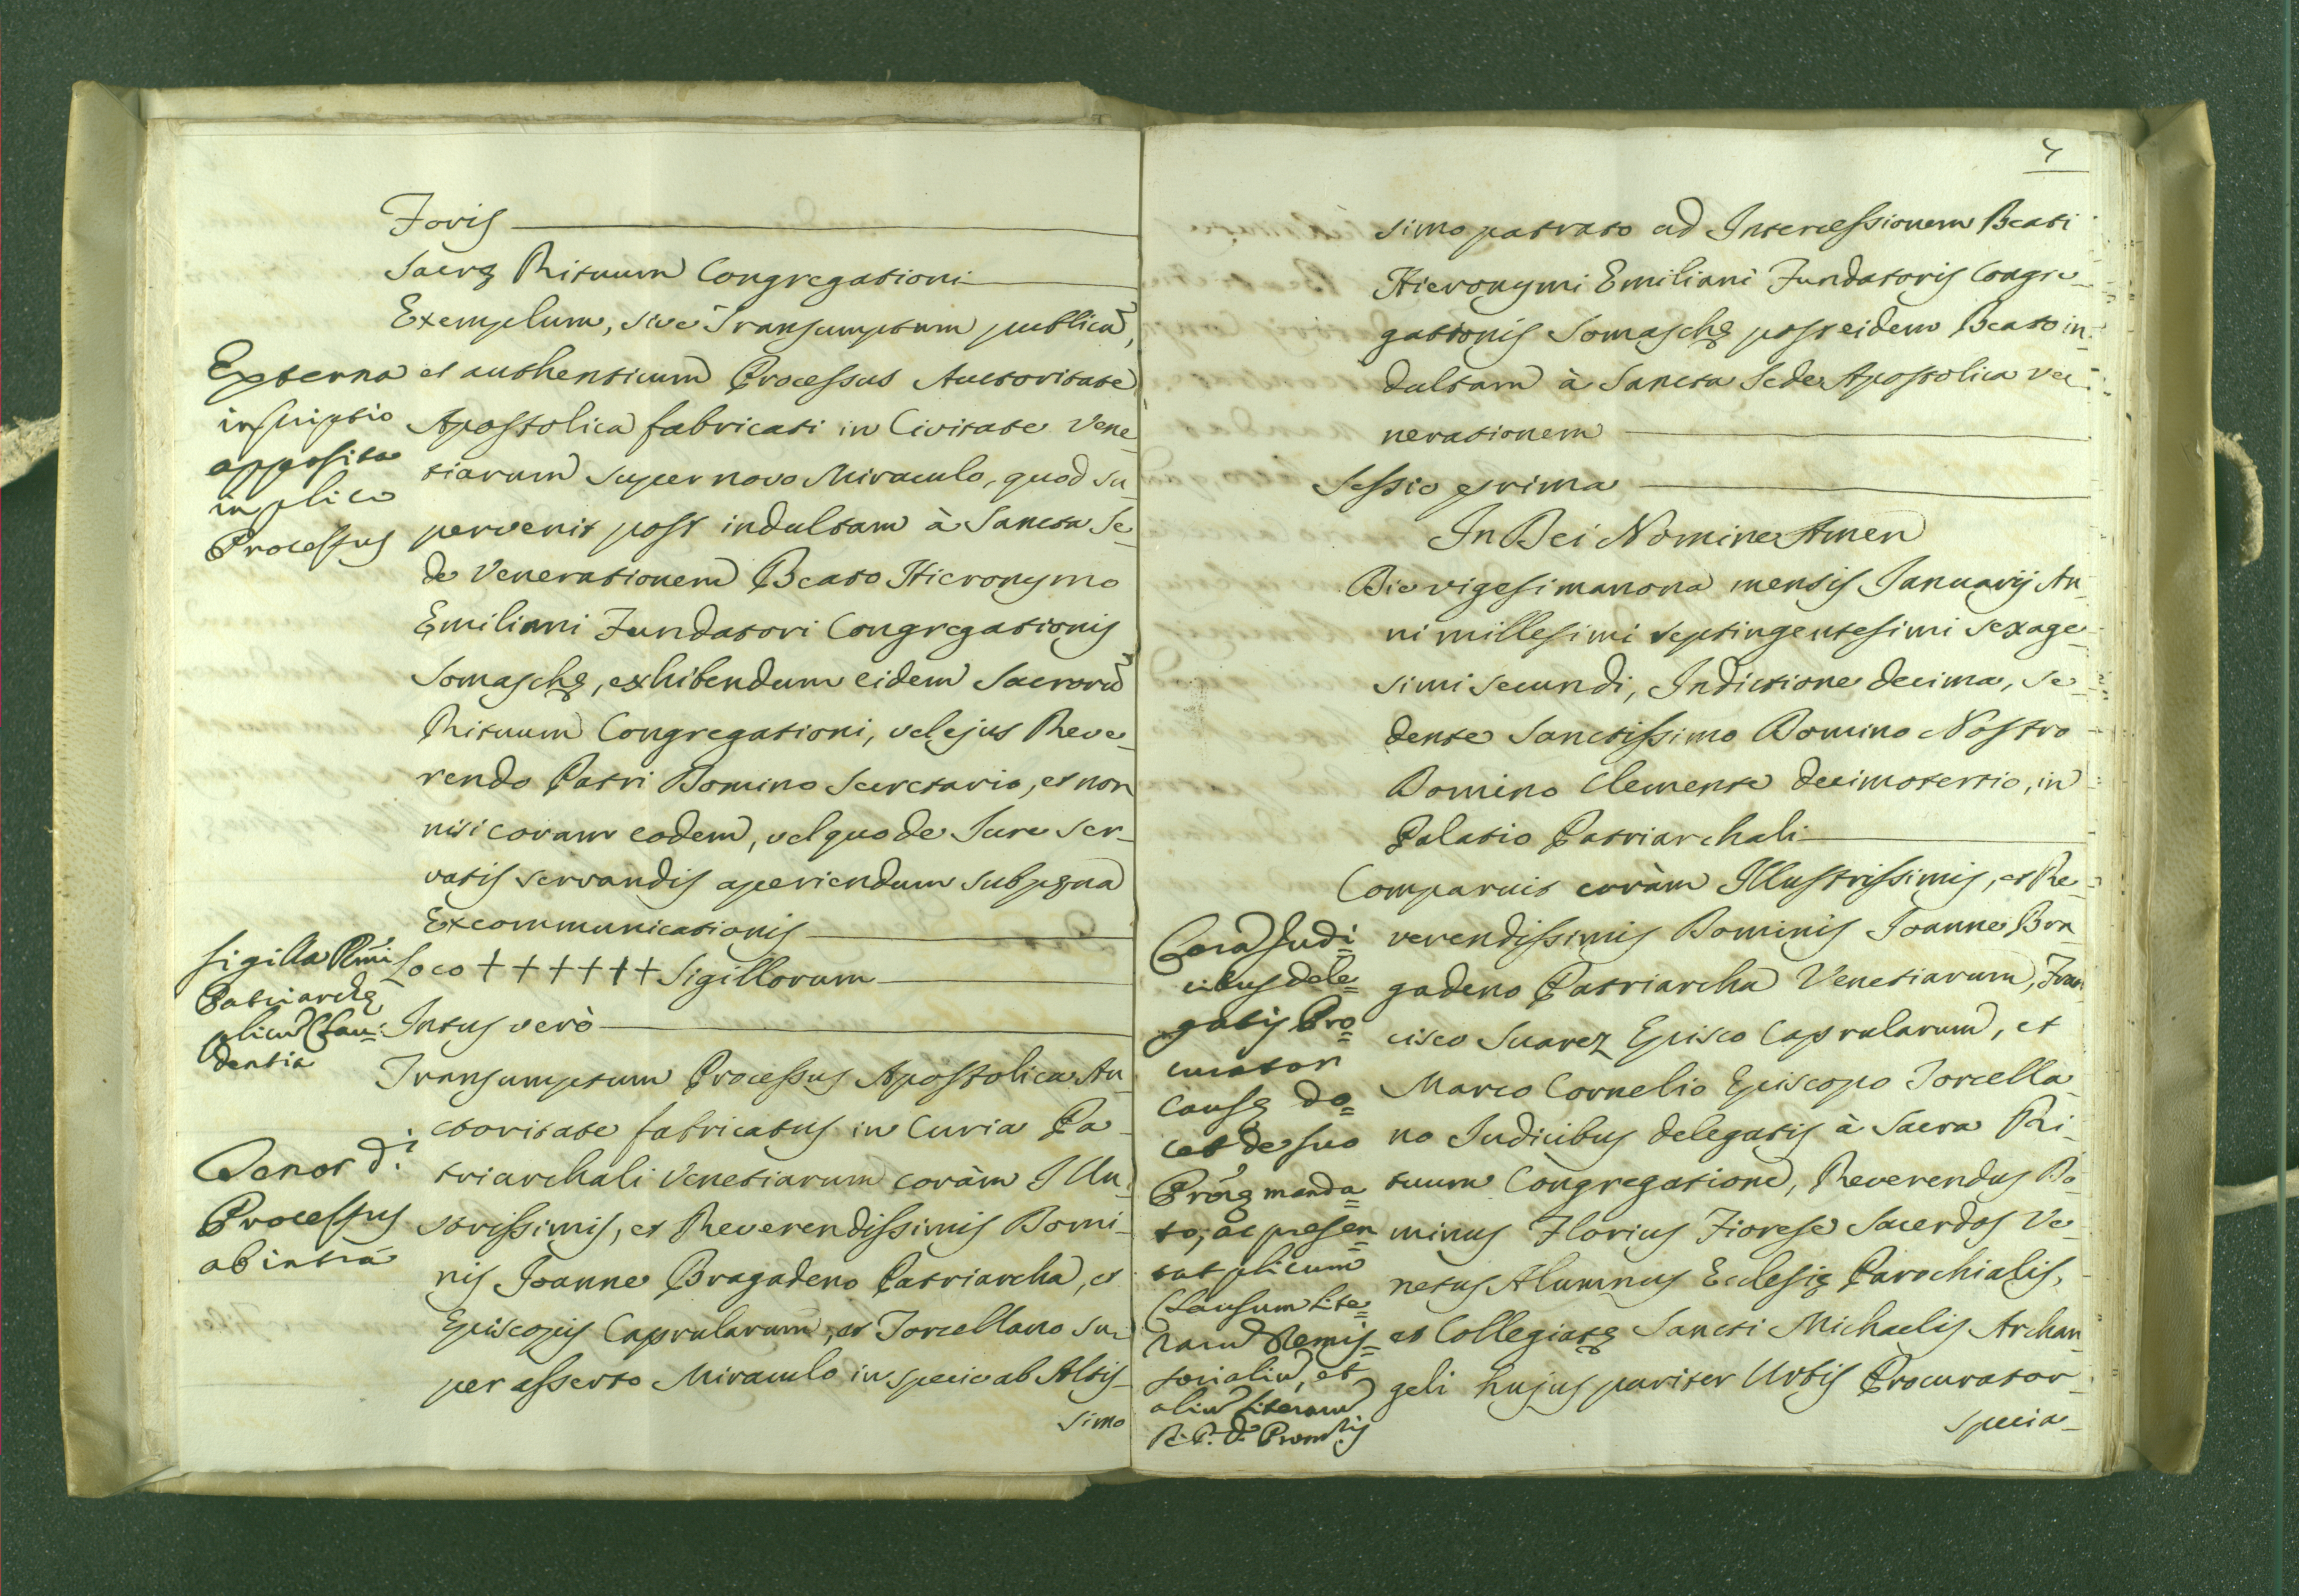 Foris
Sacrę Rituum Congregationi
Exemplum, sive Transumptum publicũ,
et authenticum Processus Auctoritate
Apostolica fabricati in Civitate Vene
tiarum super novo Miraculo, quod su-
pervenit post indultam à Sancta Se-
de Venerationem Beato Hieronymo
Emiliani Fundatori Congregationis
Somaschę, exhibendum eidem Sacrorũ
Rituum Congregationi, vel ejus Reve-
rendo Patri Domino Secretario, et non
nisi coram eodem, vel quo de Jure ser-
vatis servandis aperiendum sub pęna
Excommunicationis
Loco + + + + + + + Sigillorum
Intus verò
Transumptum Processus Apostolica Au
ctoritate fabricatus in Curia Pa-
triarchali Venetiarum coràm Illu-
strissimis, et Reverendissimis Domi-
nis Joanne Bragadeno Patriarcha, et
Episcopis Caprularum, et Torcellano Su-
per asserto Miraculo in specie ab Altis-
simo
Externa
inscriptio
apposita
in plico
Processus
Sigilla Rmi
Patriarchę
plicũ Clau=
dentia
Tenor d.i
Processus
ab intra
simo patrato ad Intercessionem Beati
Hieronymi Emiliani Fundatoris Congre-
gationis Somaschę post eidem Beato in-
dultam à Sancta Sede Apostolica ve-
nerationem
Sessio prima
In Dei Nomine Amen
Die vigesimanona mensis Januarij An-
ni millesimi septingentesimi sexage-
simi secundi, Indictione decima, se-
dente Sanctissimo Domino Nostro
Domino Clemente decimotertio, in
Palatio Patriarchali
Comparuit coràm Illustrissimis, et Re-
verendissimis Dominis Joanne Bra
gadeno Patriarcha Venetiarum, Fran
cisco Suarez Episco Caprularum, et
Marco Cornelio Episcopo Torcella
no Judicibus delegatis à Sacra Ri-
tuum Congregatione, Reverendus Do-
minus Florius Fiorese Sacerdos Ve-
netus Alumnus Ecclesię Parochialis,
et Collegiatę Sancti Michaelis Archan
geli hujus pariter Urbis Procurator
specia-
Corã Judi=
cibus dele=
gatis Pro=
curator
Causę do=
cet de suo
Procręg manda=
to, ac presen=
tat plicum
Clausum Lite=
rarũ Remis=
sorialiũ, et
aliũ literarũ
R. P. D. Promris